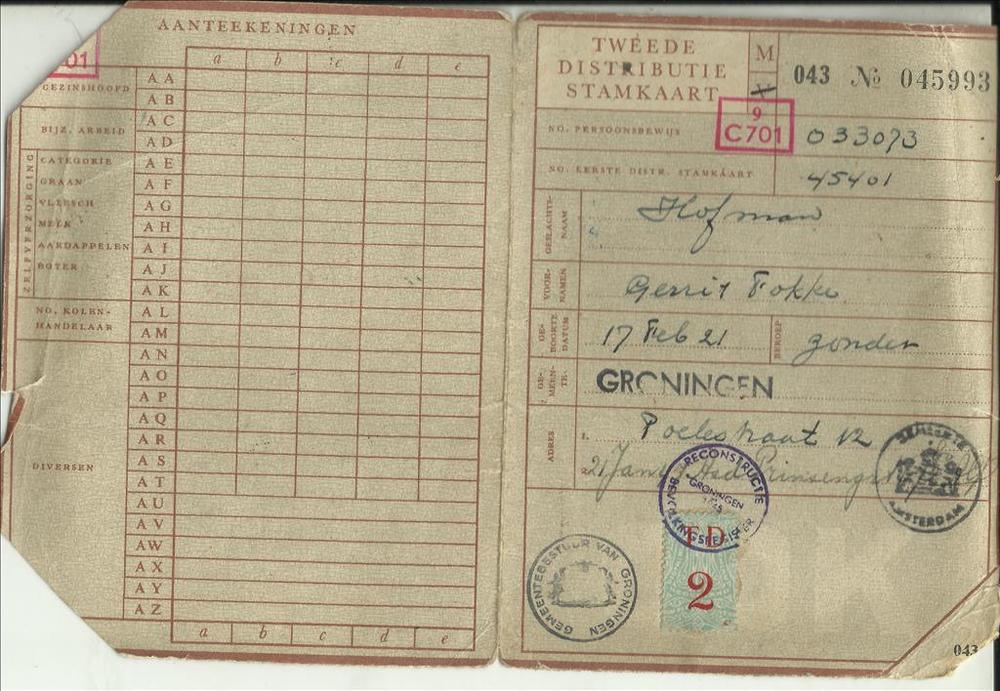 AANTEEKENINGEN
a b c d e
01
GEZINSHOOFD
BIJZ. ARBEID
ZELFVERZORGING
CATEGORIE
GRAAN
VLEESCH
MELK
AARDAPPELEN
BOTER
NO. KOLEN-
HANDELAAR
DIVERSEN
AA
AB
AC
AD
AE
AF
AG
AH
AI
AJ
AK
AL
AM
AN
AO
AP
AQ
AR
AS
AT
AU
AV
AW
AX
AY
AZ
a b c d e
TWEEDE
DISTRIBUTIE
STAMKAART
M
V
043 № 045993
9
C701
NO. PERSOONSBEWIJS 033073
NO. EERSTE DISTR. STAMKAART 45401
GESLACHTS-
NAAM
Hofman
VOOR-
NAMEN
Gerrit Fokke
GE-
BOORTE
DATUM
17 Feb 21
BEROEP
zonder
GE-
MEEN-
TE.
GRONINGEN
ADRES
1. Poelestraat 12
2. 21 Jan Asd Prinsengr
GEMEENTE
AMSTERDAM
RECONSTRUCTIE
GRONINGEN
GEMEENTEBESTUUR VAN GRONINGEN
TD
2
043